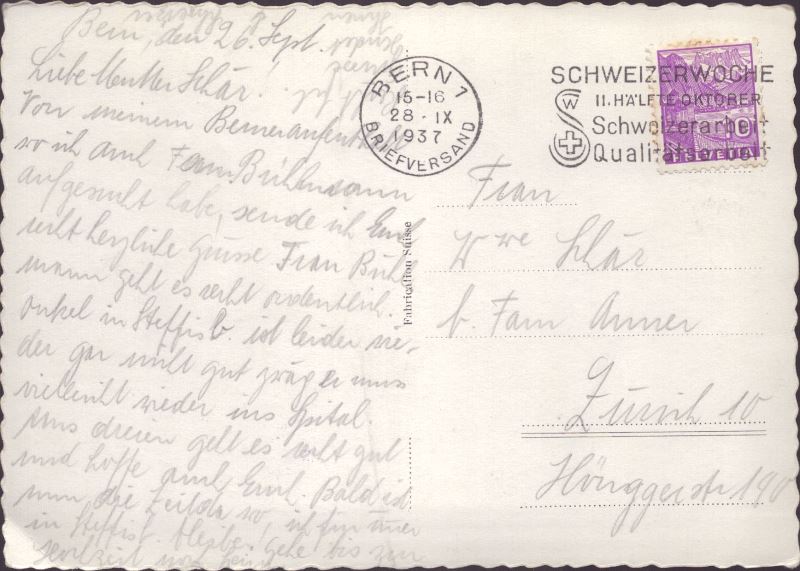 Bern, den 26. Sept.
Liebe Mutter Schär.
Von meinem Berneraufenthalt
wo ich auch Fam. Bühlmann
aufgesucht habe, sende ich Euch
recht herzliche Grüsse Frau Bühl
mann geht es recht ordentlich.
Onkel in Steffisb. ist leider wie-
der gar nicht gut er muss
vielleicht wieder ins Spital.
Uns dreien geht es recht gut
und hoffe auch Euch. Bald ist
nun die Zeit da wo ich für immer
in Steffisb. bleibe. Gehe bis zur
noch heim
BERN 1
15-16
28.IX
1937
BRIEFVERSAND
SCHWEIZERWOCHE
II. HÄLFTE OKTOBER
SW
Schweizerarbeit
Qualitätsarbeit
10
HELVETIA
Fabrication Suisse
Frau
Wwe Schär
b. Fam Anner
Zürich 10
Hönggerstr 190